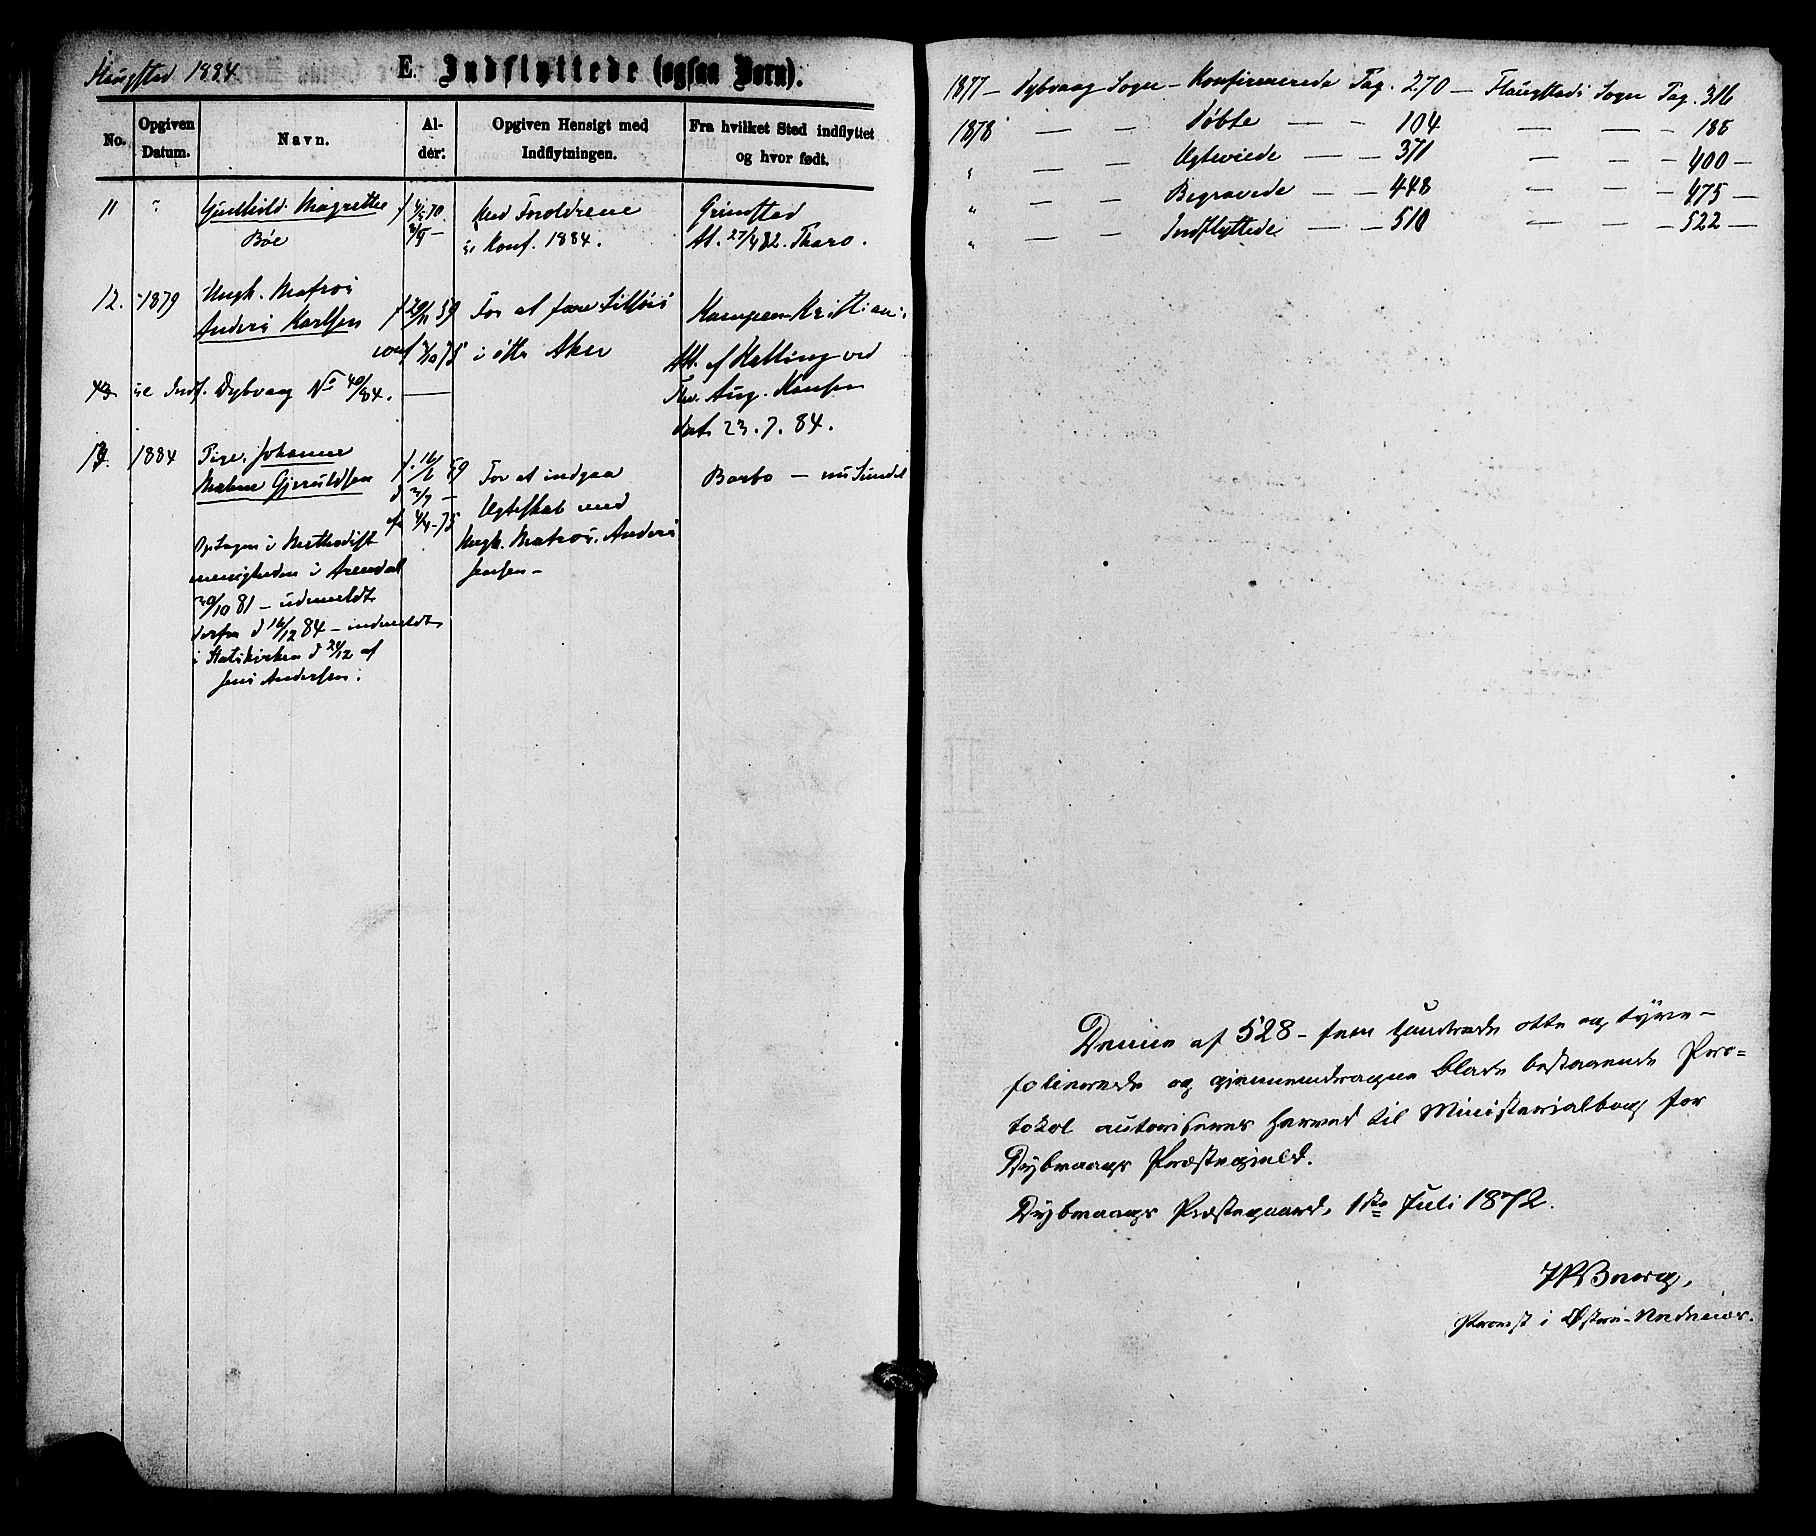 Flaugstad 1884
E. Indflyttede (ogsaa Børn).
No.
Opgiven Datum.
Navn.
Alder:
Opgiven Hensigt med Indflytningen.
Fra hvilket Sted indflyttet og hvor født.
11 " Gunhild Magrethe Bøe
f 4/5 70.
2/9 —
Med Forældrene
Konf. 1884.
Grimstad
At. 27/4 82. Tharo.
12. 1879 Ungk. Matros
Anders Karlsen
f 20/11 59
conf 3/10 75
For at fare tilsøs
i
Kampen Kristian:
Att. af
Aug. Hansen
dat. 23.7.84.
13 se Indf. Dybvaag No 40/84. —
13. 1884 Pige. Johanne
Malene Gjeruldsen
f. 16/6 59
d 3/7 —
4/4 - 75
For at indgaa
Ægteskab med
Ungk. Matros. Anders
Jensen —
Barbo — nu Sundet
Optagen i Methodist
menigheden i Arendal
30/10 81 — udmeldt
derfra d 16/12 84 — indmeldt
i Statskirken d 24/12 af
Jens Andersen.
1877 — Dybvaag Sogn — Konfirmerede Pag. 270 — Flaugstads Sogn Pag. 316
1878 — — Døbte — — 104 — — — 188
" — — Ægteviede — — 371 — — — 400 —
" — — Begravede — — 448 — — — 475 —
" — — Indflyttede — — 510 — — — 522 —
Denne af 528 — fem hundrede otte og tyve —
folierede og gjennemdragne Blade bestaaende Pro=
tokol autoriseres herved til Ministerialbog for
Dybvaags Præstegjeld.
Dybvaags Præstegaard, 1ste Juli 1872.
Provst i Østre-Nedenæs.